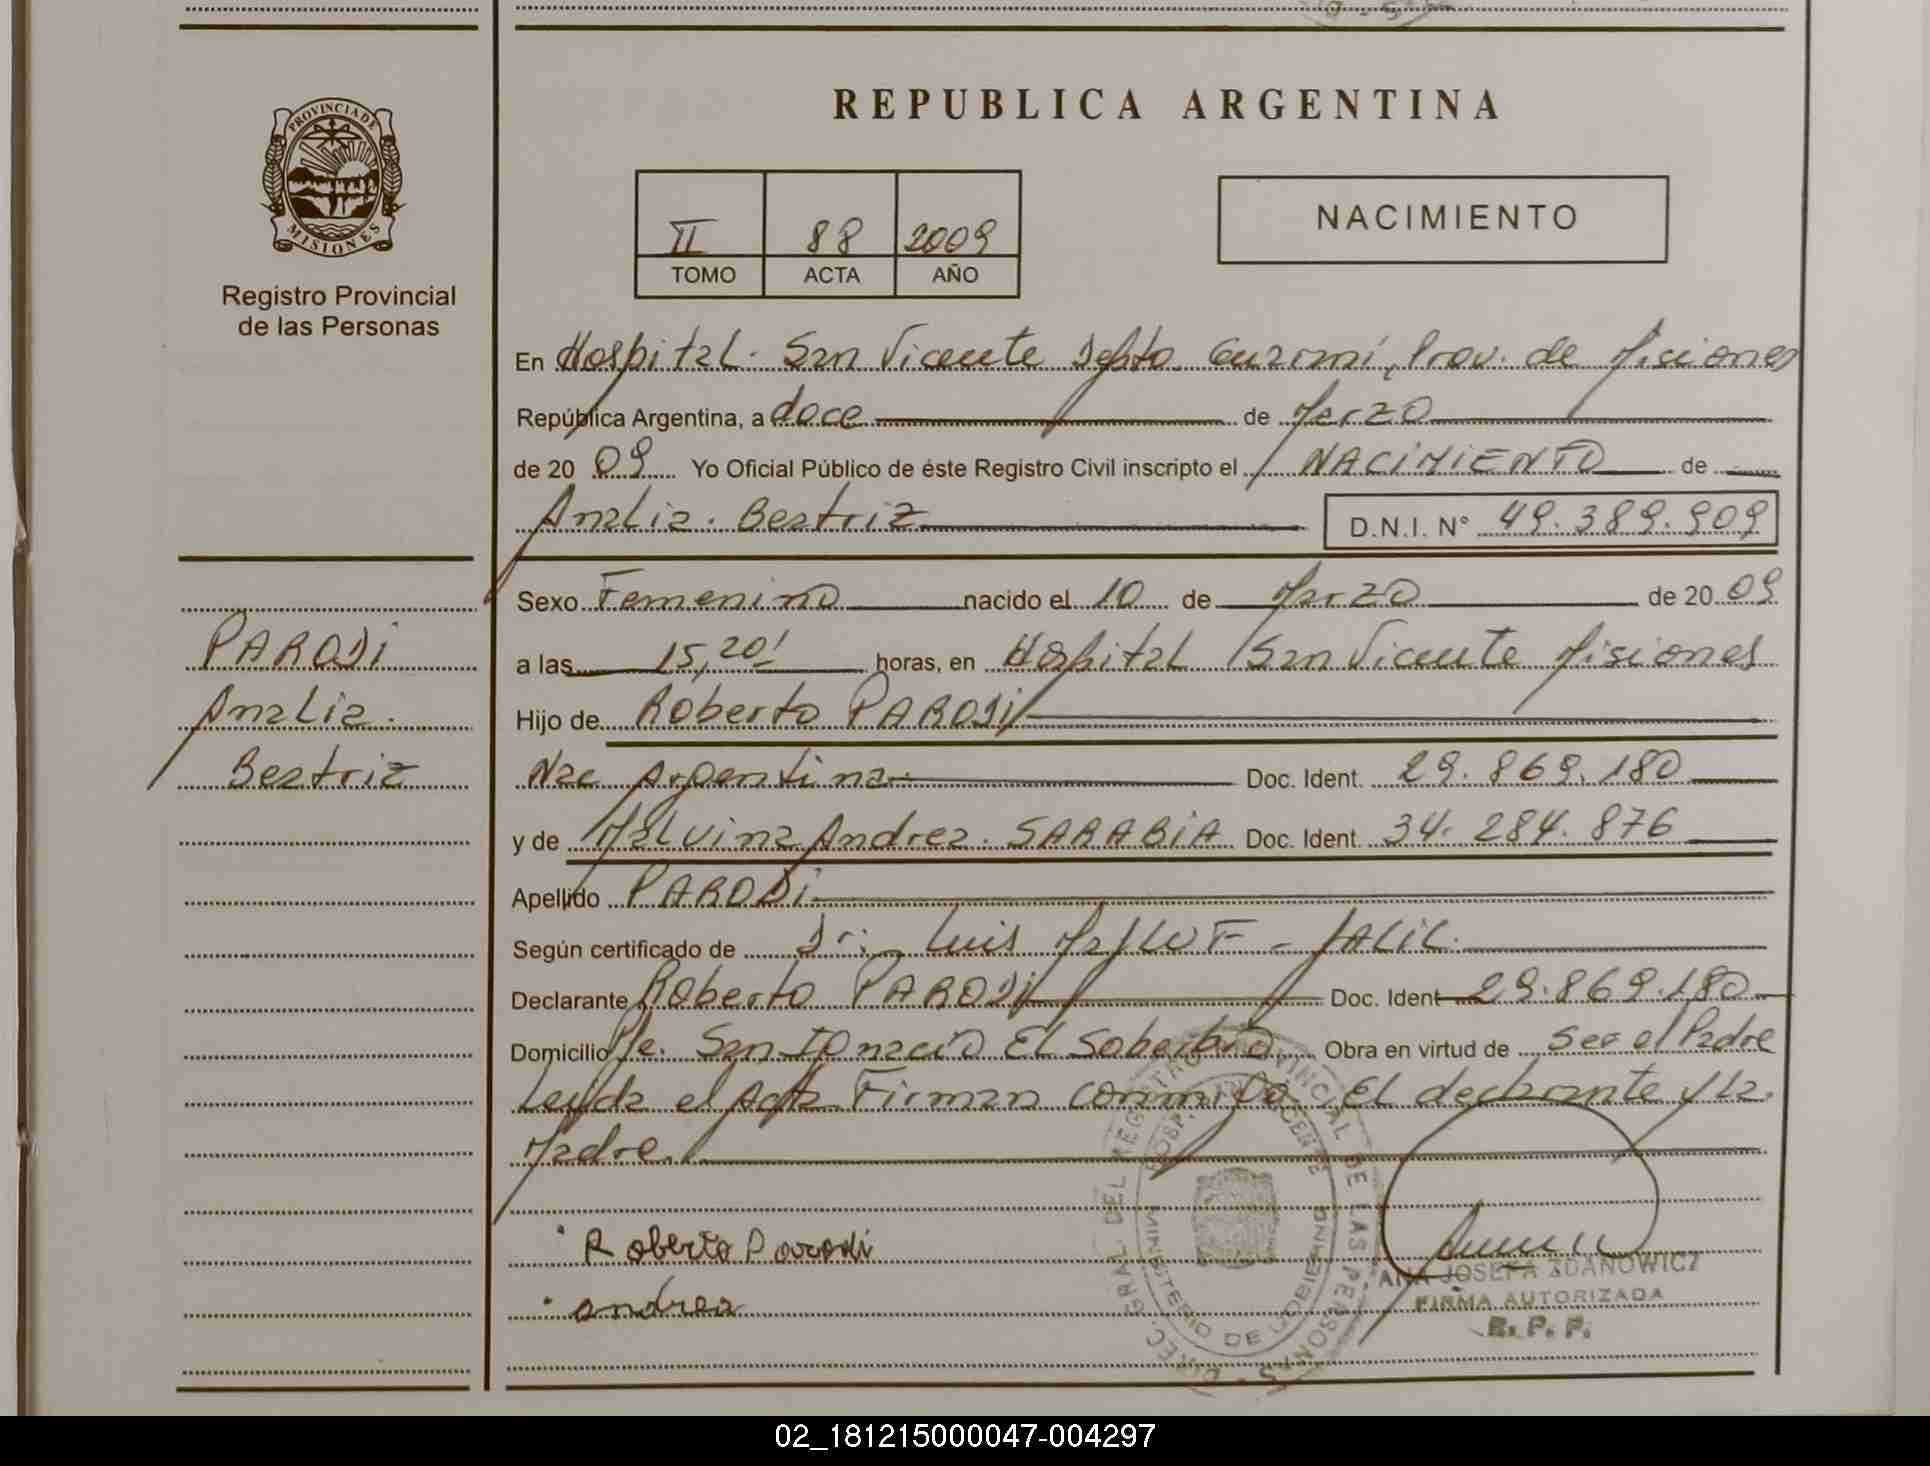 REPUBLICA ARGENTINA
PROVINCIA DE
MISIONES
Registro Provincial
de las Personas
II 88 2009
TOMO ACTA AÑO
NACIMIENTO
En Hospital. San Vicente Dpto. Guaraní, Prov. de Misiones
República Argentina, a doce de Marzo
de 2009 Yo Oficial Público de éste Registro Civil inscripto el NACIMIENTO de
Analia. Beatriz D.N.I. N° 49.389.909
Sexo Femenino nacido el 10 de Marzo de 2009
a las 15,20' horas, en Hospital San Vicente Misiones
Hijo de Roberto PARODi
Nac Argentina Doc. Ident. 29.869.180
y de Malvina Andrea. SARABiA Doc. Ident. 34.284.876
Apellido PARODi
Según certificado de Dr. Luis JALiL.
Declarante Roberto PARODi Doc. Ident 29.869.180
Domicilio Pje. San Ignacio El Soberbio Obra en virtud de ser el Padre
Leída el Acta Firman conmigo El declarante y la
Madre.
PARODi
Analia.
Beatriz
Roberto Parodi
andrea
DIREC. GRAL. DEL REGISTRO PROVINCIAL DE LAS PERSONAS
HOSP. SAN VICENTE
MINISTERIO DE GOBIERNO
ANA JOSEFA ZDANOWICZ
FIRMA AUTORIZADA
R. P. P.
02_181215000047-004297